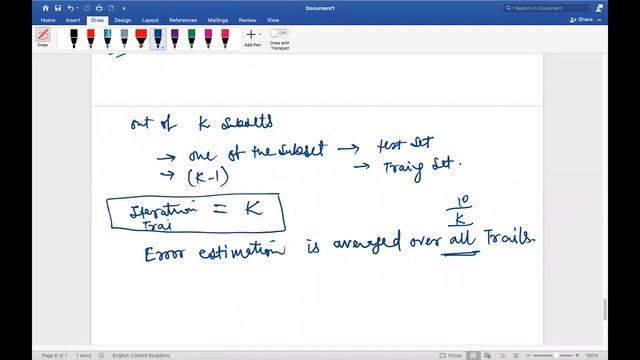 Document1
Search in Document
Home Insert Draw Design Layout References Mailings Review View
Share
Draw
Add Pen
OFF
Draw with Trackpad
out of K Subsets
→ one of the subset → test set
→ (K-1) → Traing set.
Iteration = K
Trai
10
K
Error estimation is averaged over all Trails
Page 6 of 7 1 word English (United Kingdom) Focus 190%